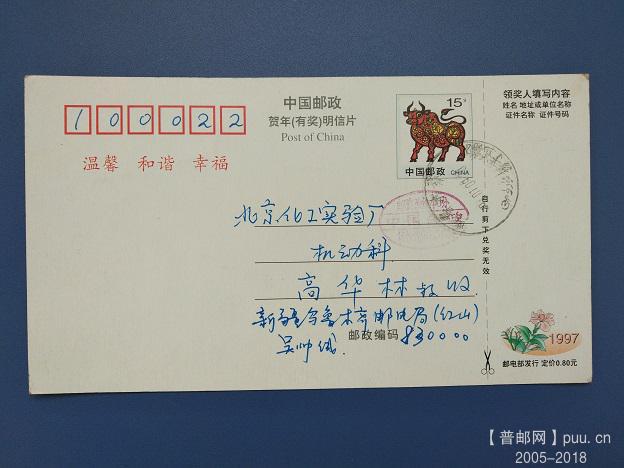 100022
中国邮政
贺年(有奖)明信片
Post of China
15分
中国邮政 CHINA
领奖人填写内容
姓名 地址或单位名称
证件名称 证件号码
温馨 和谐 幸福
北京化工实验厂
机动科
高华林 收
新疆乌鲁木齐邮电局(红山)
邮政编码 830000
自行剪下兑奖无效
1997
邮电部发行 定价0.80元
【普邮网】puu.cn
2005-2018